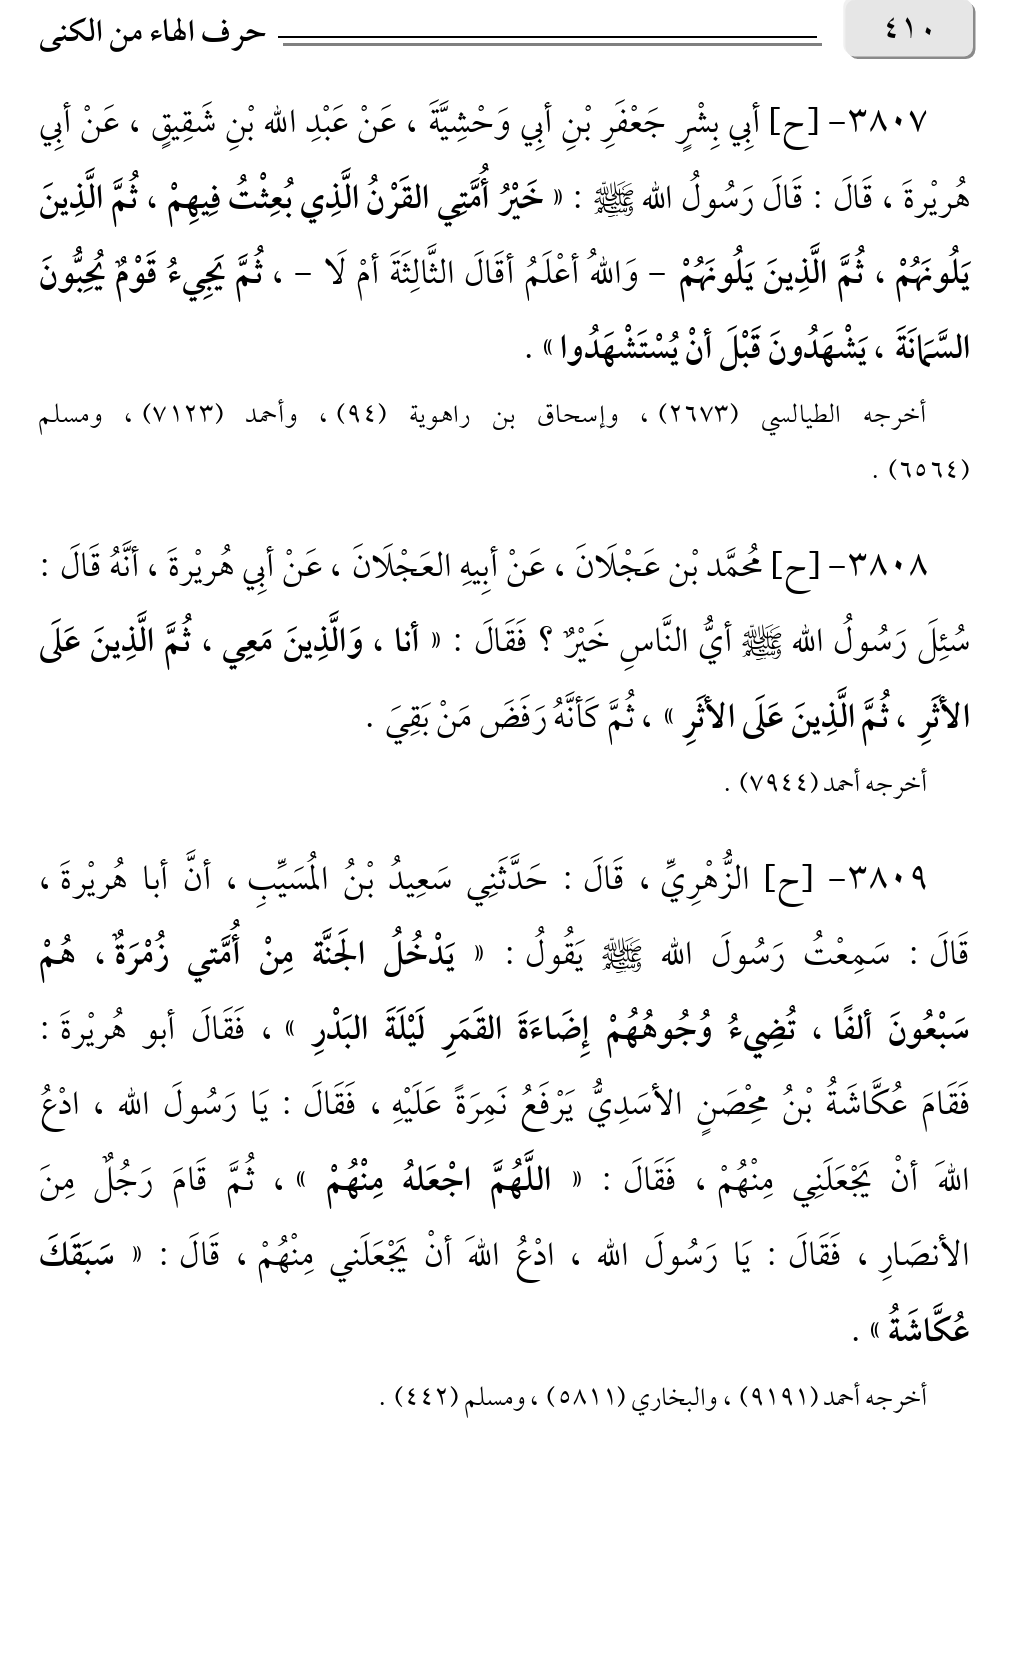 ٤١٠
حرف الهاء من الكنى
٣٨٠٧- [ح] أبِي بِشْرٍ جَعْفَرِ بْنِ أبِي وَحْشِيَّةَ ، عَنْ عَبْدِ الله بْنِ شَقِيقٍ ، عَنْ أبِي
هُرِيْرةَ ، قَالَ : قَالَ رَسُولُ الله ﷺ : « خَيْرُ أُمَّتِي القَرْنُ الَّذِي بُعِثْتُ فِيهِمْ ، ثُمَّ الَّذِينَ
يَلُونَهُمْ ، ثُمَّ الَّذِينَ يَلُونَهُمْ – وَاللهُ أعْلَمُ أقَالَ الثَّالِثَةَ أمْ لَا – ، ثُمَّ يَجِيءُ قَوْمٌ يُحِبُّونَ
السَّمَانَةَ ، يَشْهَدُونَ قَبْلَ أنْ يُسْتَشْهَدُوا » .
أخرجه الطيالسي (٢٦٧٣) ، وإسحاق بن راهوية (٩٤) ، وأحمد (٧١٢٣) ، ومسلم
(٦٥٦٤) .
٣٨٠٨- [ح] مُحمَّد بْن عَجْلَانَ ، عَنْ أبِيهِ العَجْلَانَ ، عَنْ أبِي هُرِيْرةَ ، أنَّهُ قَالَ :
سُئِلَ رَسُولُ الله ﷺ أيُّ النَّاسِ خَيْرٌ ؟ فَقَالَ : « أنا ، وَالَّذِينَ مَعِي ، ثُمَّ الَّذِينَ عَلَى
الأثَرِ ، ثُمَّ الَّذِينَ عَلَى الأثَرِ » ، ثُمَّ كَأنَّهُ رَفَضَ مَنْ بَقِيَ .
أخرجه أحمد (٧٩٤٤) .
٣٨٠٩- [ح] الزُّهْرِيِّ ، قَالَ : حَدَّثَنِي سَعِيدُ بْنُ المُسَيِّبِ ، أنَّ أبا هُرِيْرةَ ،
قَالَ : سَمِعْتُ رَسُولَ الله ﷺ يَقُولُ : « يَدْخُلُ الجَنَّة مِنْ أُمَّتي زُمْرَةٌ ، هُمْ
سَبْعُونَ ألفًا ، تُضِيءُ وُجُوهُهُمْ إِضَاءَةَ القَمَرِ لَيْلَةَ البَدْرِ » ، فَقَالَ أبو هُرِيْرةَ :
فَقَامَ عُكَّاشَةُ بْنُ مِحْصَنٍ الأسَدِيُّ يَرْفَعُ نَمِرَةً عَلَيْهِ ، فَقَالَ : يَا رَسُولَ الله ، ادْعُ
اللهَ أنْ يَجْعَلَنِي مِنْهُمْ ، فَقَالَ : « اللَّهُمَّ اجْعَلهُ مِنْهُمْ » ، ثُمَّ قَامَ رَجُلٌ مِنَ
الأنصَارِ ، فَقَالَ : يَا رَسُولَ الله ، ادْعُ اللهَ أنْ يَجْعَلَني مِنْهُمْ ، قَالَ : « سَبَقَكَ
عُكَّاشَةُ » .
أخرجه أحمد (٩١٩١) ، والبخاري (٥٨١١) ، ومسلم (٤٤٢) .